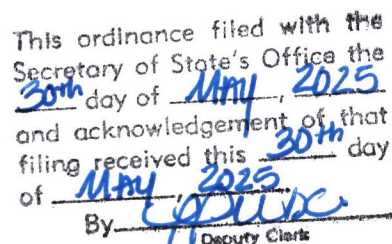 This ordinance filed with the
Secretary of State's Office the
30th day of MAY, 2025
and acknowledgement of that
filing received this 30th day
of MAY, 2025.
By
Deputy Clerk